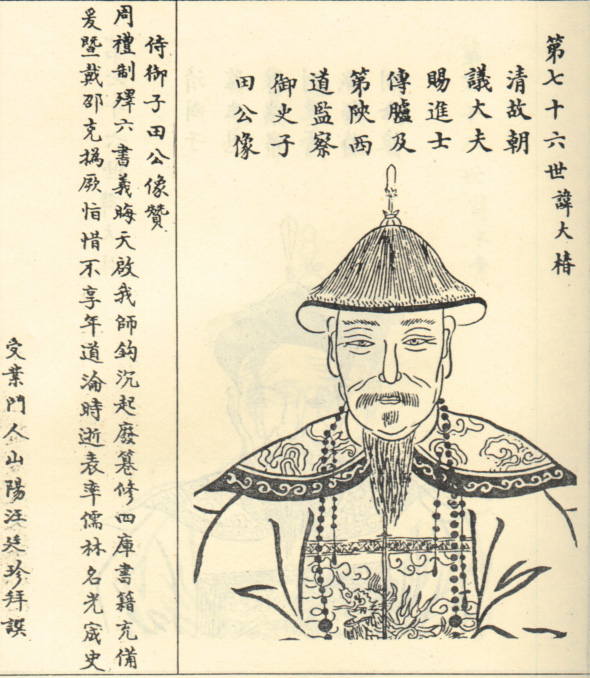 第七十六世諱大椿
清故朝
議大夫
賜進士
傳臚及
第陝西
道監察
御史子
田公像
侍御子田公像贊
周禮制釋六書義晦天啟我師鈎沉起廢纂修四庫書籍充備
爰暨戴邵克撝厥恉惜不享年道淪時逝表率儒林名光宬史
受業門人山陽汪廷珍拜譔